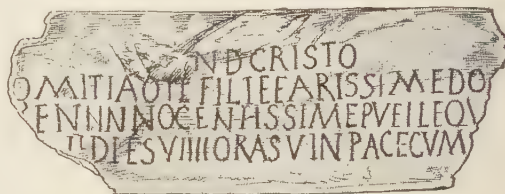 IN D CRISTO
OMITIAQTE FILIE EARISSIMEDO
ENINNNOCENHSSIMEPVEILEQV
TIDIESVIIIIORASVINPACECVM